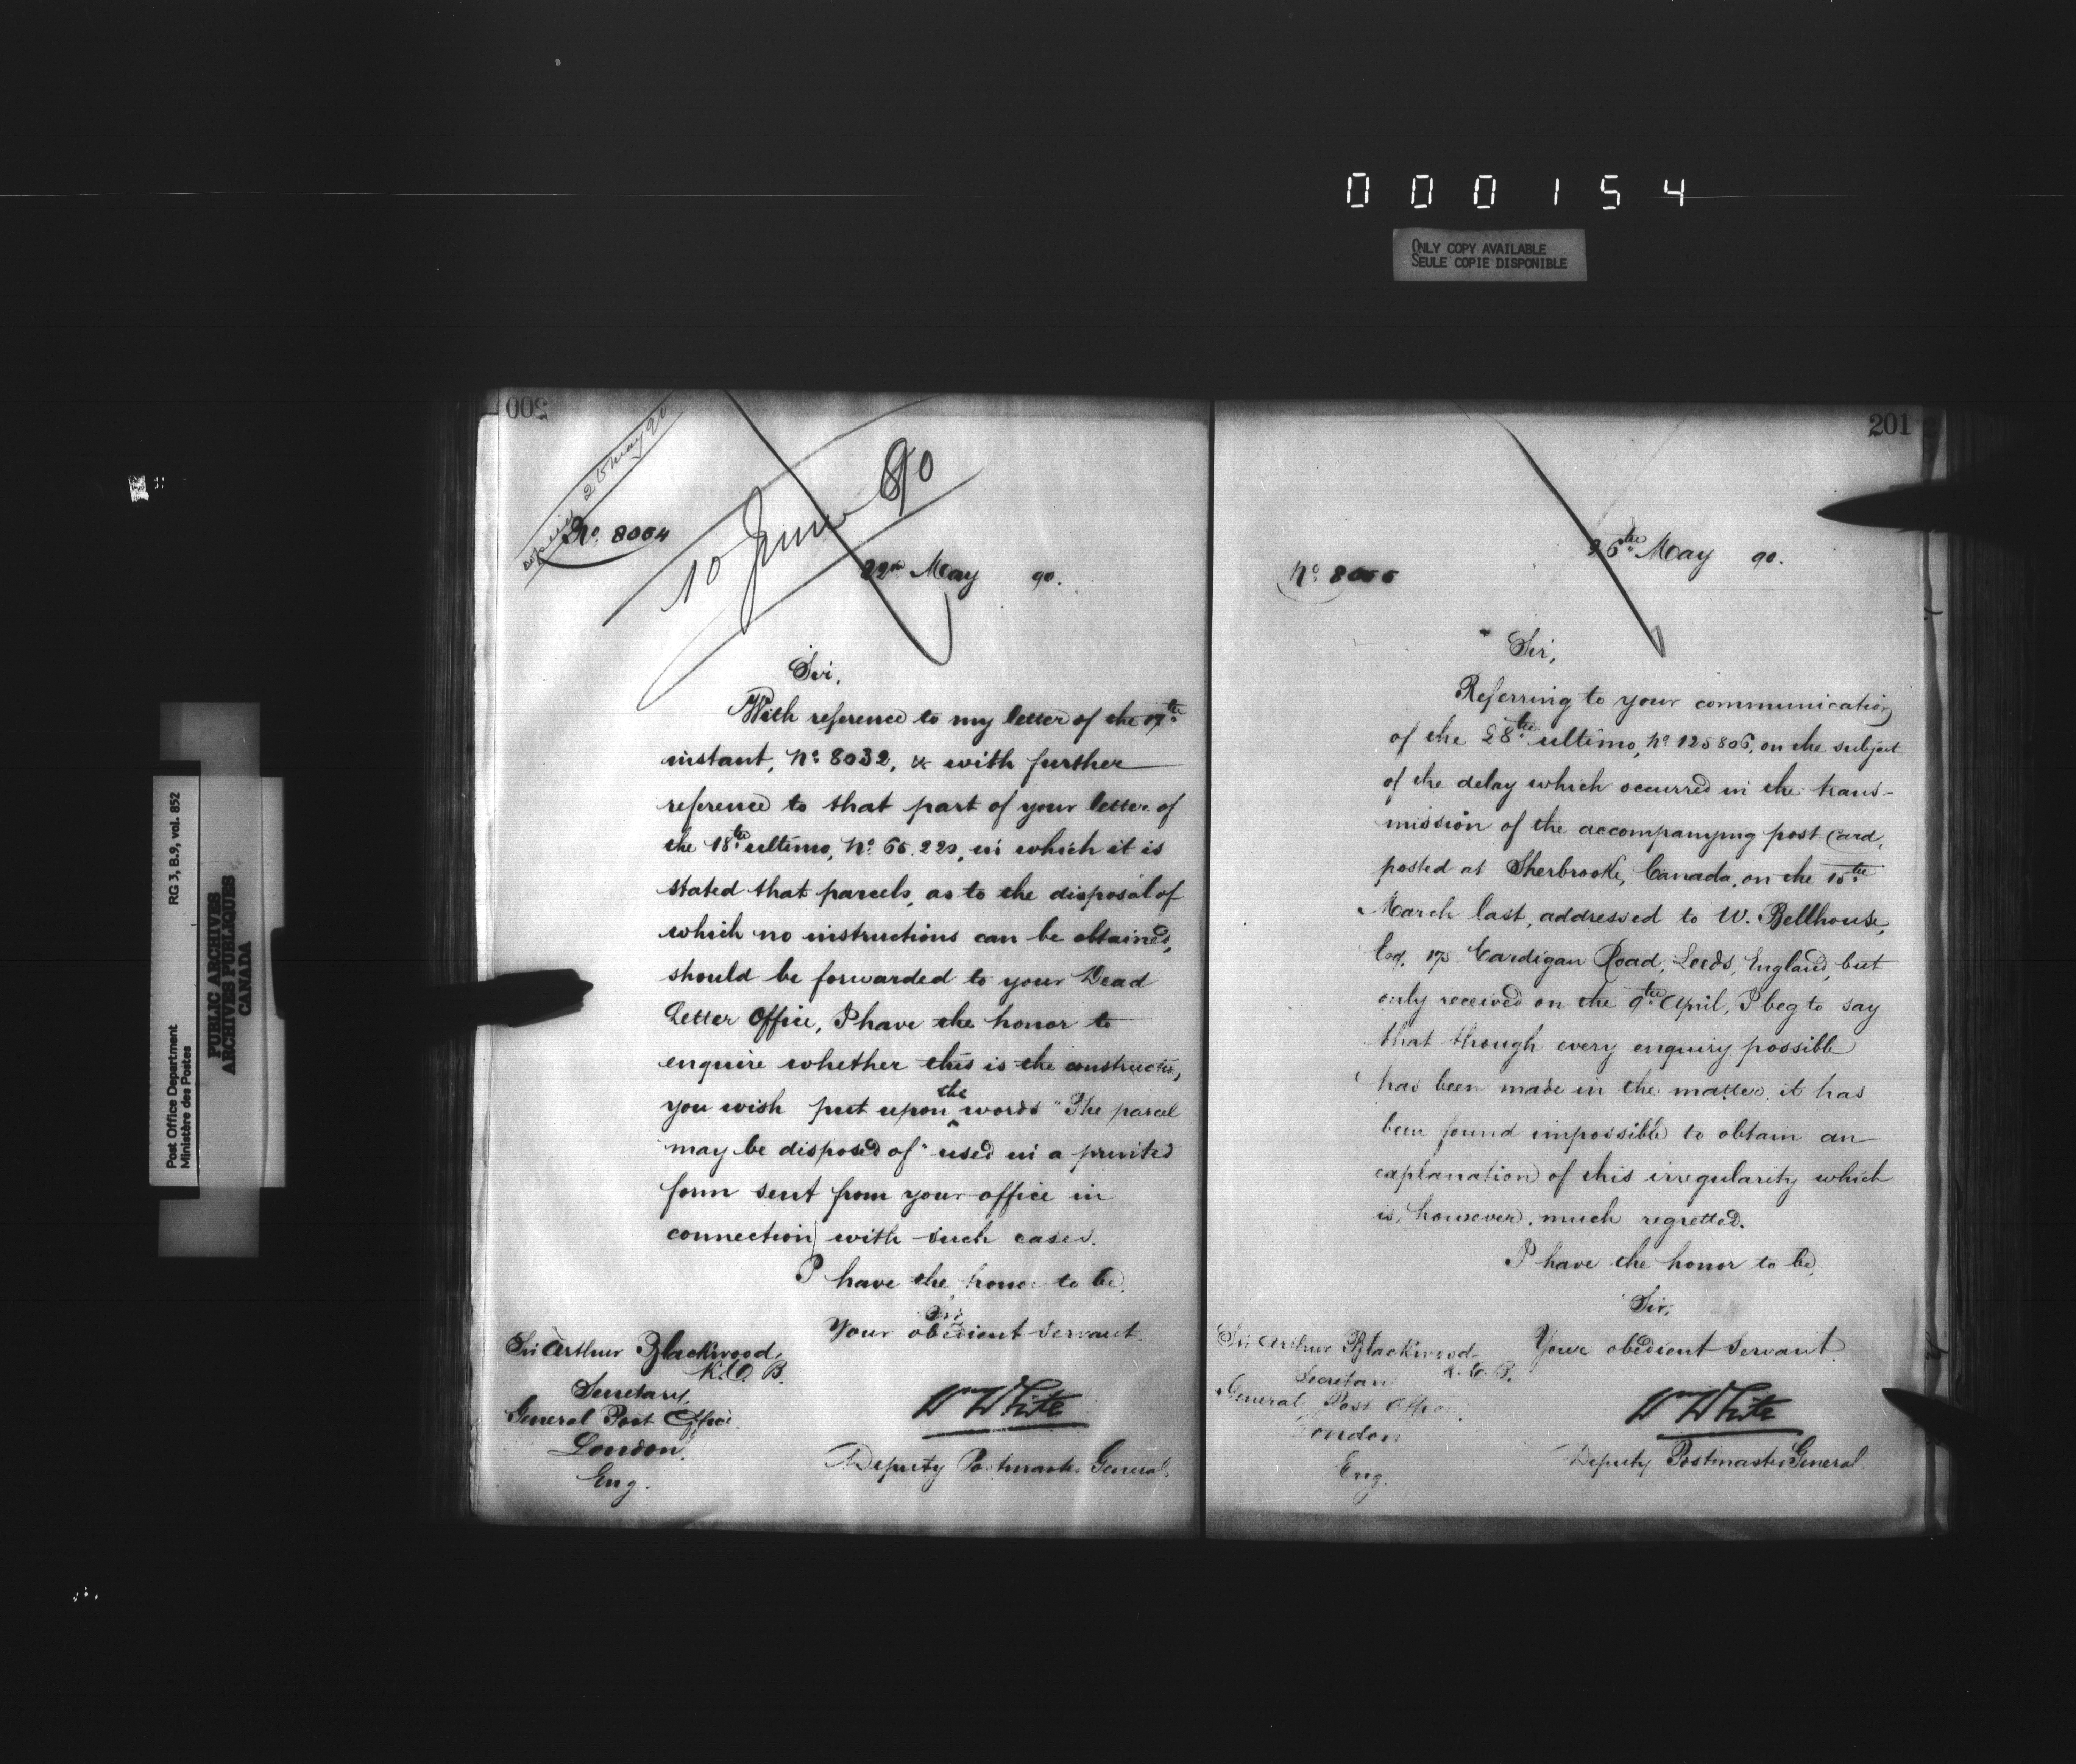 0 0 0 1 5 4
ONLY COPY AVAILABLE
SEULE COPIE DISPONIBLE
Post Office Department
Ministère des Postes
RG 3, B.9, vol. 852
PUBLIC ARCHIVES
ARCHIVES PUBLIQUES
CANADA
200
May 90
10 June 90
No. 8054
22nd May 90.
Sir,
With reference to my letter of the 17th
instant, No. 8032, & with further
reference to that part of your letter of
the 18th ultimo, No. in which it is
stated that parcels, as to the disposal of
which no instructions can be obtained,
should be forwarded to your Dead
Letter Office, I have the honor to
enquire whether this is the construction,
you wish put upon the words "The parcel
may be disposed of" used in a printed
form sent from your office in
connection with such cases.
I have the honor to be,
Sir,
Your obedient servant.
Sir Arthur Blackwood,
K.C.B.
Secretary,
General Post Office
London,
Eng.
Wm White
Deputy Postmaster General.
201
May 90.
No.
Sir,
Referring to your communication
of the 28th ultimo, No. 125806, on the subject
of the delay which occurred in the trans-
mission of the accompanying post card,
posted at Sherbrooke, Canada, on the 15th
March last, addressed to W. Bellhouse,
Esq. 175 Cardigan Road, Leeds, England, but
only received on the 9th April, I beg to say
that though every enquiry possible
has been made in the matter, it has
been found impossible to obtain an
explanation of this irregularity which
is, however, much regretted.
I have the honor to be,
Sir,
Your obedient servant.
Sir Arthur Blackwood
K.C.B.
Secretary
General Post Office
London
Eng.
Wm White
Deputy Postmaster General.